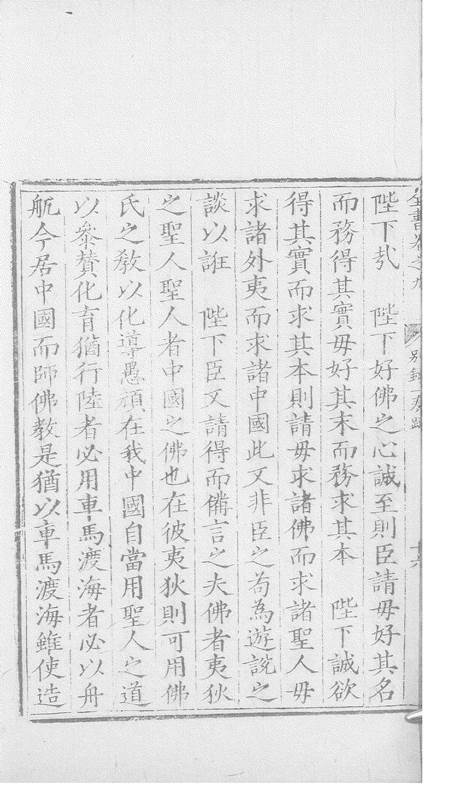 全書卷之九 別錄一奏疏
陛下㢤 陛下好佛之心誠至則臣請毋好其名
而務得其實毋好其末而務求其本 陛下誠欲
得其實而求其本則請毋求諸佛而求諸聖人毋
求諸外夷而求諸中國此又非臣之苟為遊說之
談以誑 陛下臣又請得而備言之夫佛者夷狄
之聖人聖人者中國之佛也在彼夷狄則可用佛
氏之教以化導愚頑在我中國自當用聖人之道
以參贊化育猶行陸者必用車馬渡海者必以舟
航今居中國而師佛教是猶以車馬渡海雖使造